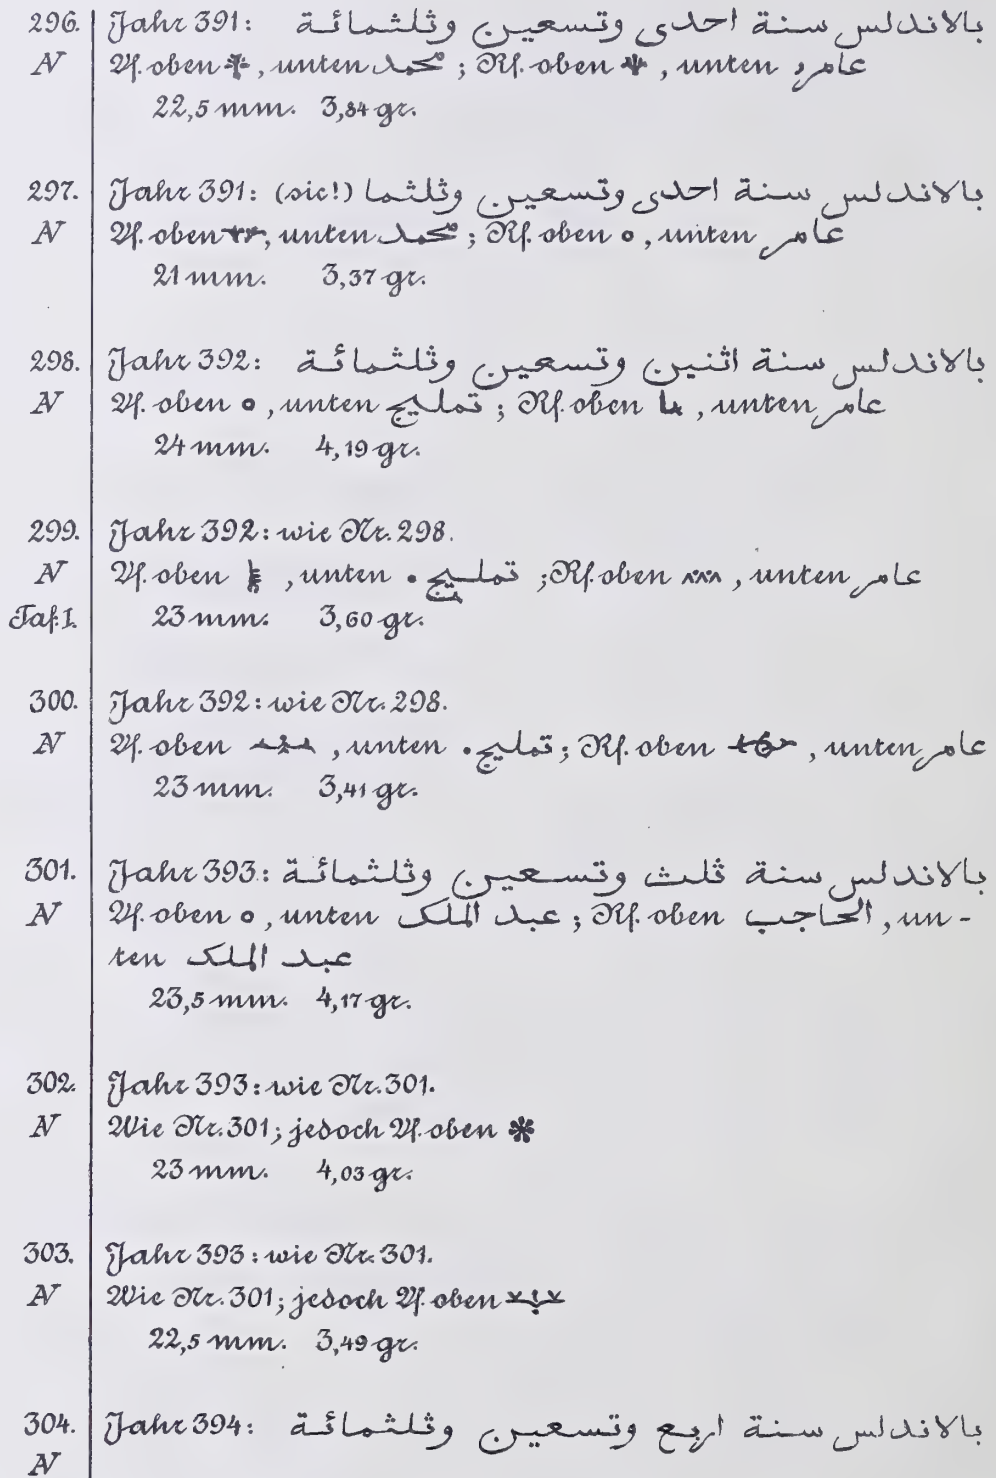 296. Jahr 391: بالاندلس سنة احدى وتسعين وثلثمائة
N Vf. oben , unten محمد ; Rf. oben , unten عامر
22,5 mm. 3,84 gr.
297. Jahr 391: (sic!) بالاندلس سنة احدى وتسعين وثلثما
N Vf. oben , unten محمد ; Rf. oben o , unten عامر
21 mm. 3,37 gr.
298. Jahr 392: بالاندلس سنة اثنين وتسعين وثلثمائة
N Vf. oben o , unten تمليج ; Rf. oben , unten عامر
24 mm. 4,19 gr.
299. Jahr 392: wie Nr. 298.
N Vf. oben , unten تمليج • ; Rf. oben , unten عامر
Taf. I. 23 mm. 3,60 gr.
300. Jahr 392: wie Nr. 298.
N Vf. oben , unten تمليج • ; Rf. oben , unten عامر
23 mm. 3,41 gr.
301. Jahr 393: بالاندلس سنة ثلث وتسعين وثلثمائة
N Vf. oben o , unten عبد الملك ; Rf. oben الحاجب , un-
ten عبد الملك
23,5 mm. 4,17 gr.
302. Jahr 393: wie Nr. 301.
N Wie Nr. 301; jedoch Vf. oben *
23 mm. 4,03 gr.
303. Jahr 393: wie Nr. 301.
N Wie Nr. 301; jedoch Vf. oben
22,5 mm. 3,49 gr.
304. Jahr 394: بالاندلس سنة اربع وتسعين وثلثمائة
N